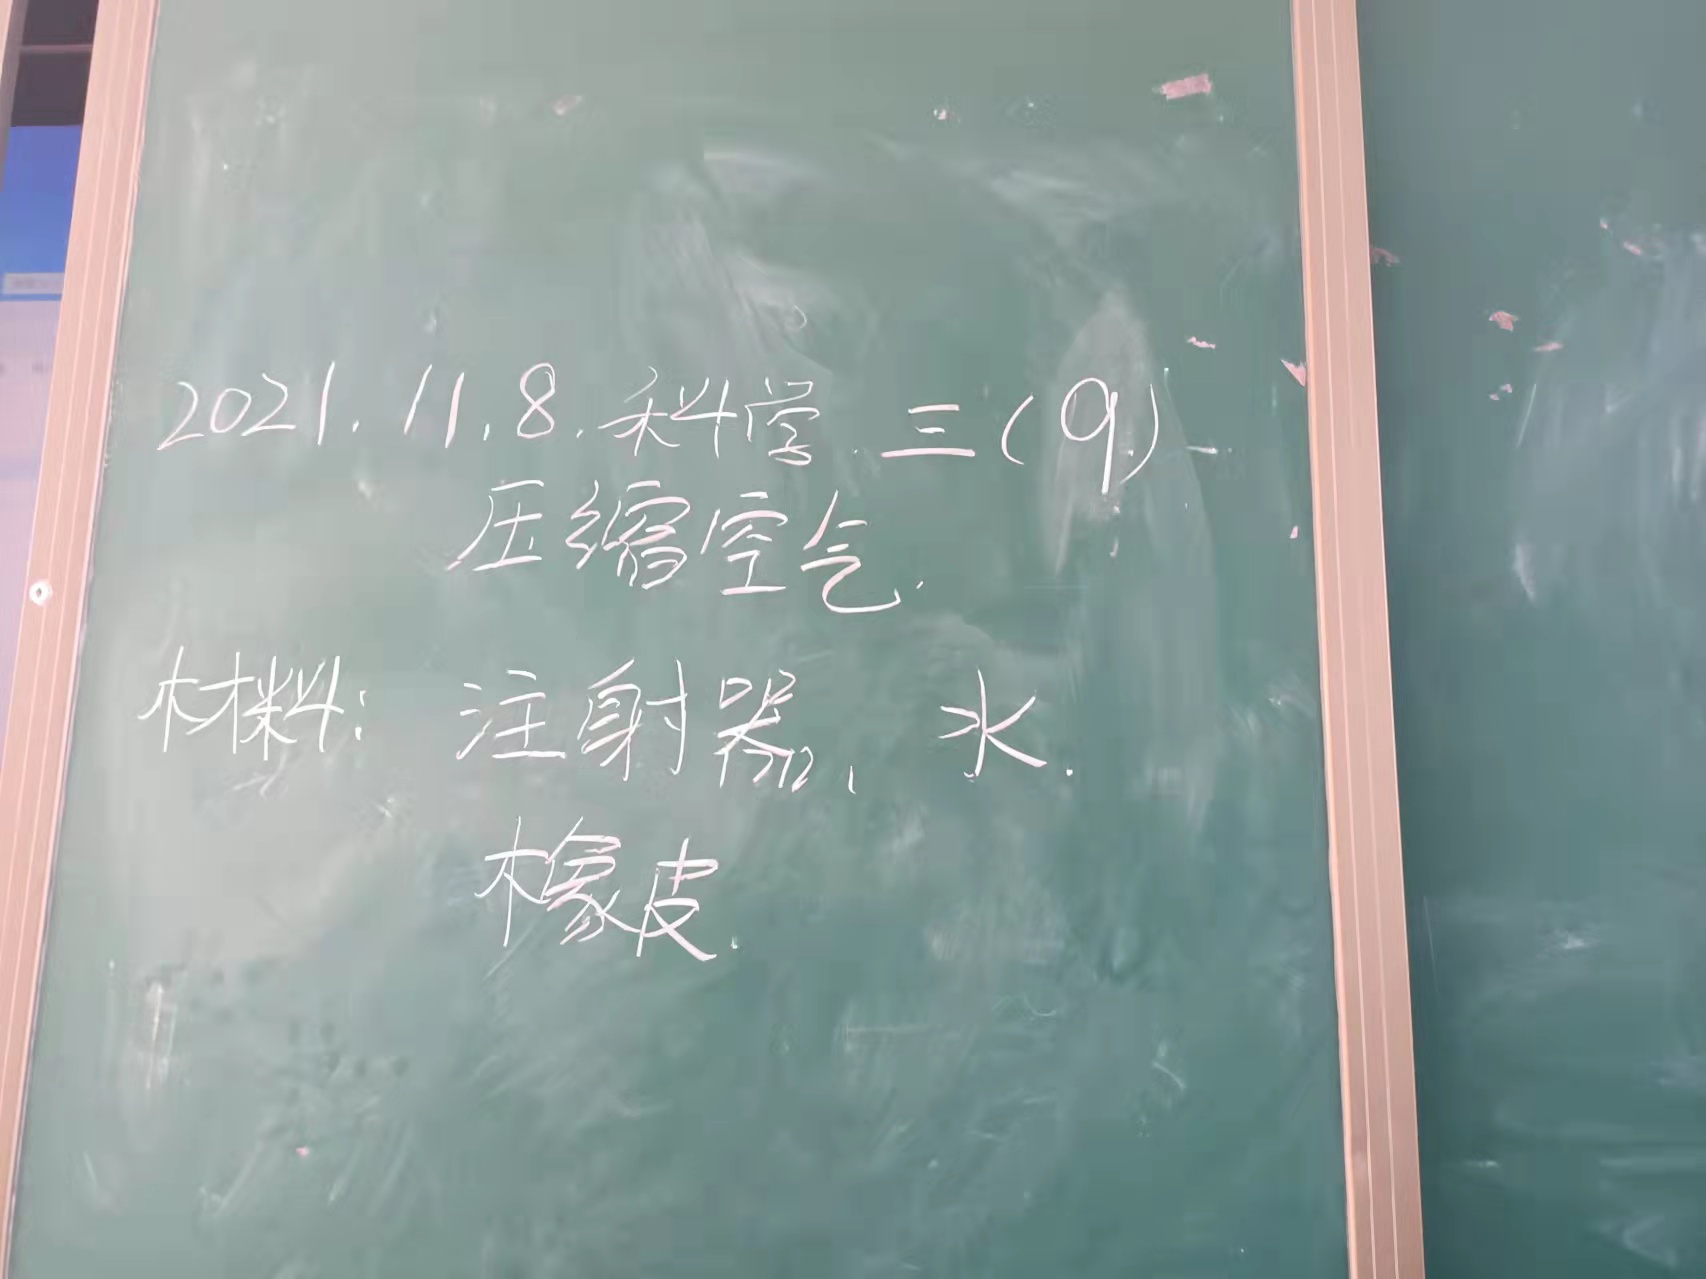 2021.11.8.科学.三(9)
压缩空气.
材料: 注射器、水.
橡皮.